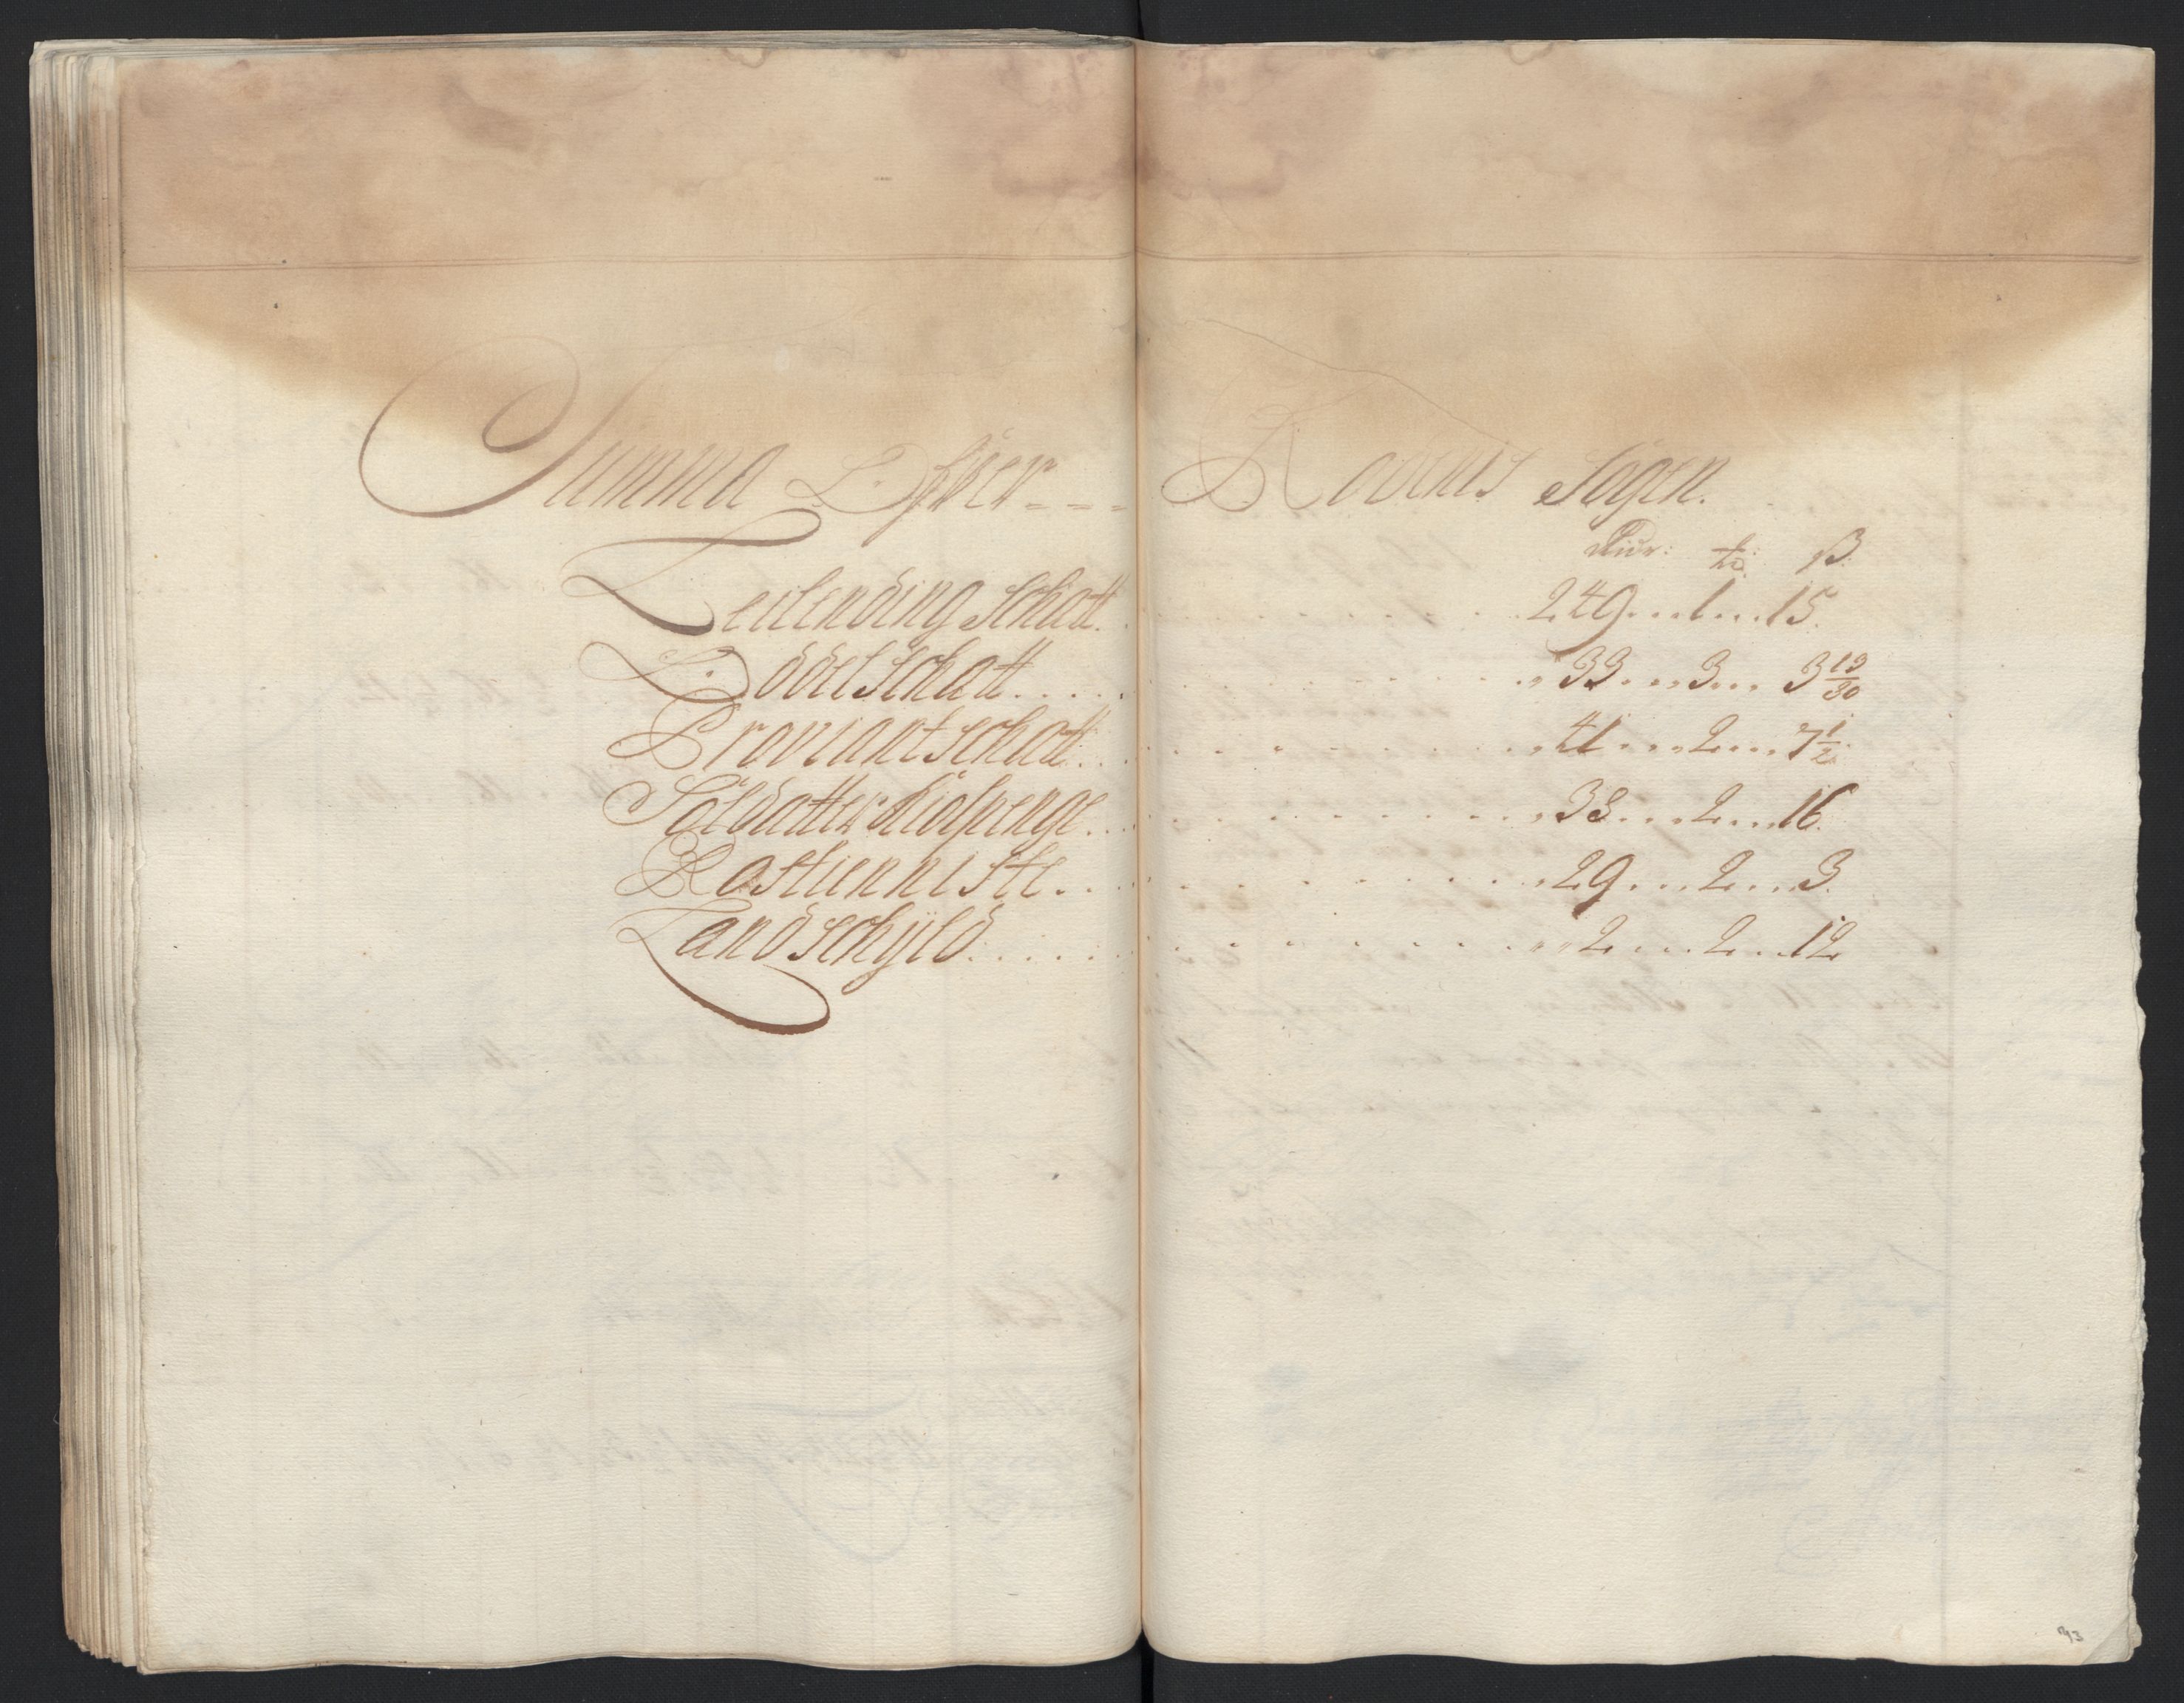 Summa Ofver - - - Rodens Sogen.
Rixr: ß.
Leilending schatt. . . . . . . . . 249 . . . 1 . . . 15.
Oddel schatt . . . . . . . . . 33 . . . 3 . . . 3 19/30
Proviant schatt . . . . . . . . . 41 . . . 2 . . . 7 1/2.
Soldatter Hiolpenge . . . . . . . . . 38 . . . 2 . . . 16.
Rostienniste . . . . . . . . . 29 . . . 2 . . . 3.
Landschyld . . . . . . . . . 2 . . . 2 . . . 12